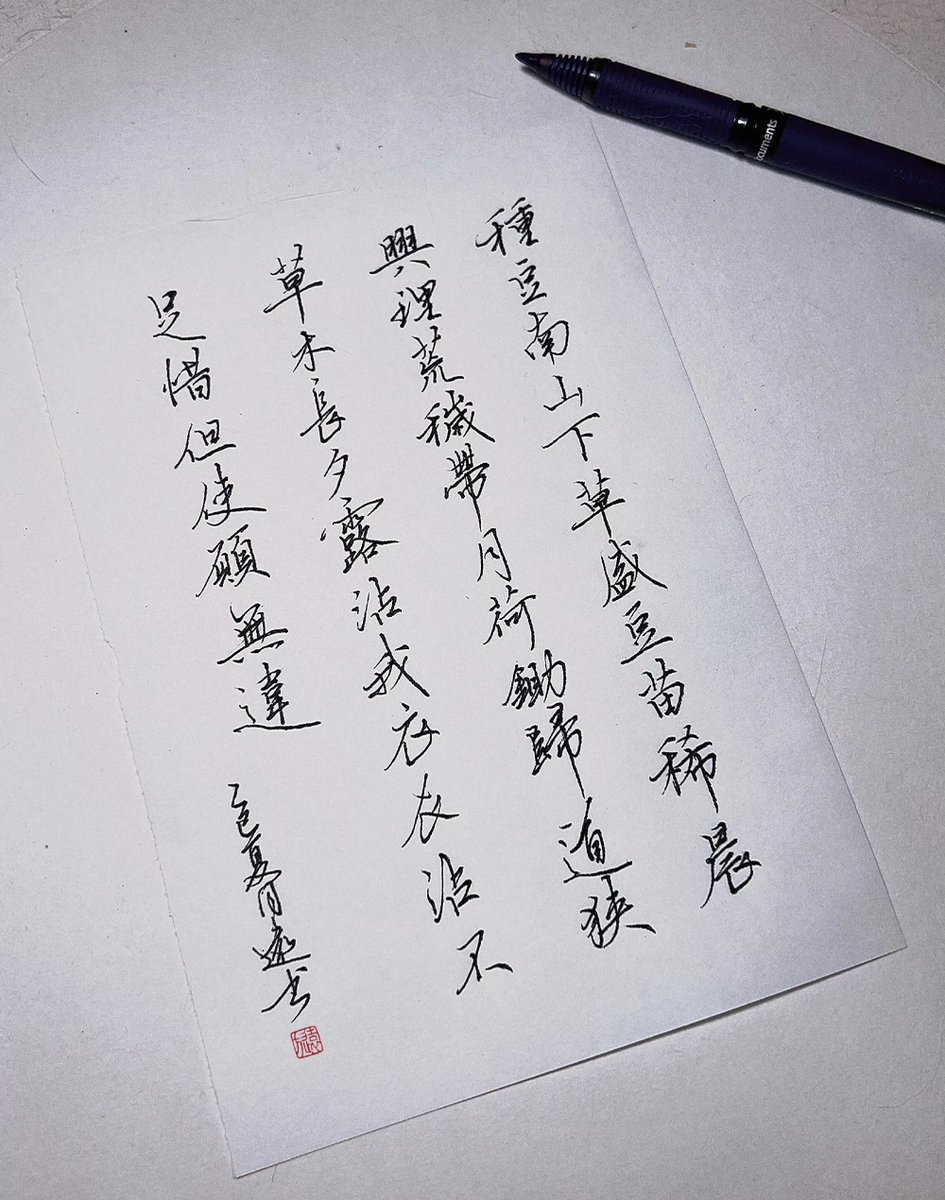 種豆南山下草盛豆苗稀晨
興理荒穢帶月荷鋤歸道狹
草木長夕露沾我衣衣沾不
足惜但使願無違
乙巳夏月遠书
ocuments